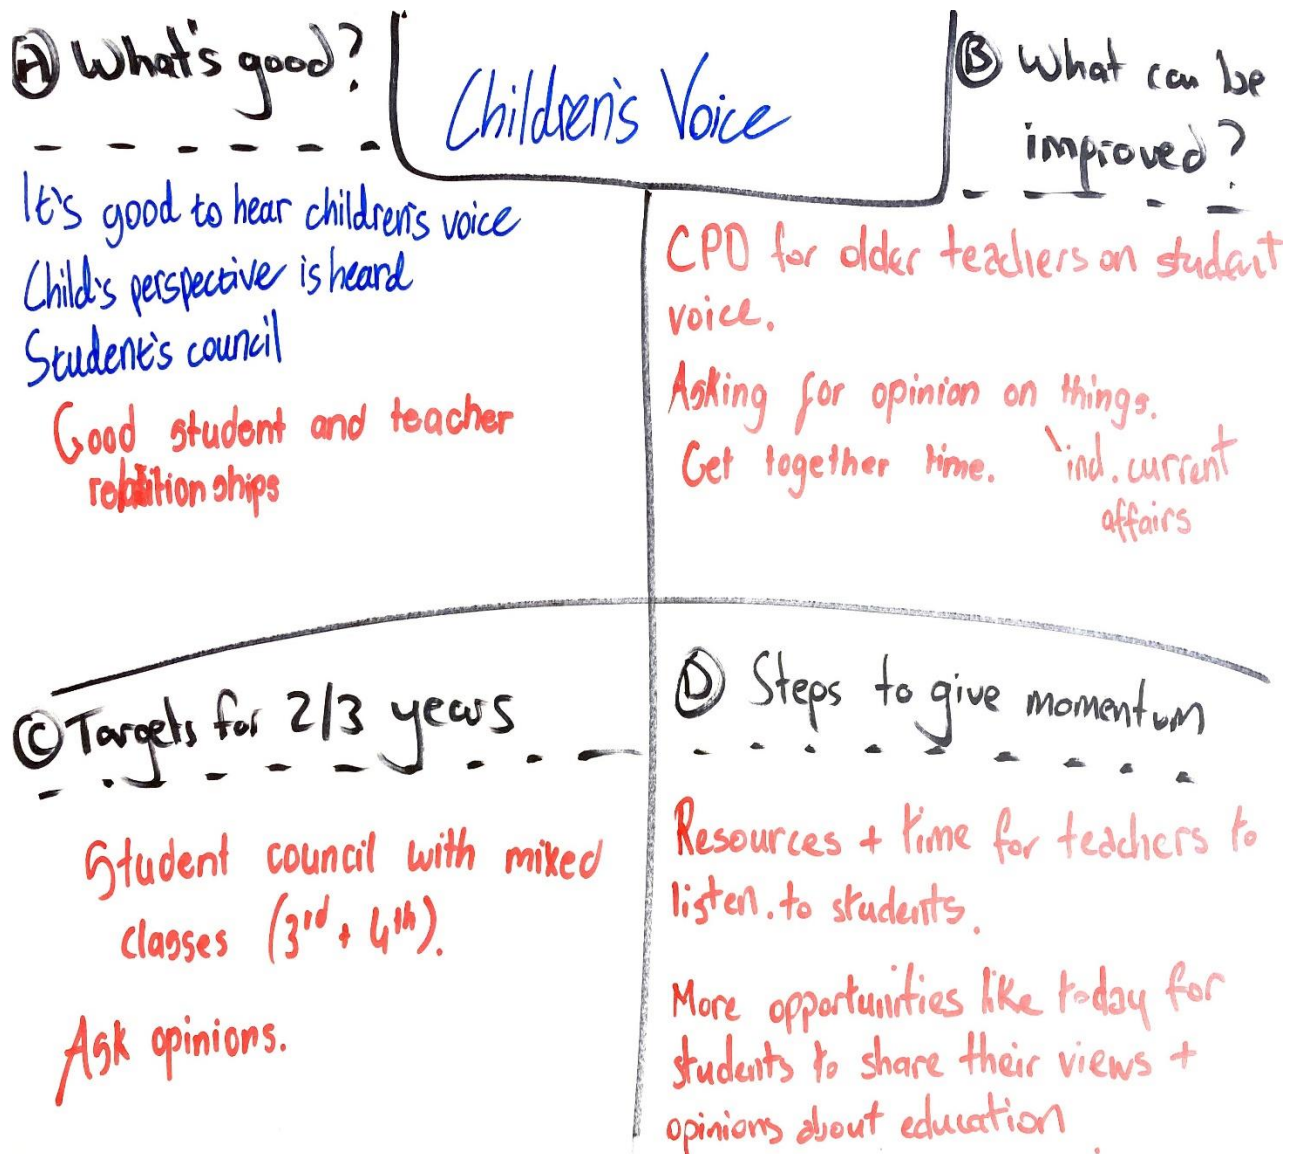 Children's Voice
Ⓐ What's good?
It's good to hear children's voice
Child's perspective is heard
Student's council
Good student and teacher
relationships
Ⓑ What can be
improved?
CPD for older teachers on student
voice.
Asking for opinion on things.
Get together time. ind. current
affairs
Ⓒ Targets for 2/3 years
Student council with mixed
classes (3rd + 4th).
Ask opinions.
Ⓓ Steps to give momentum
Resources + time for teachers to
listen. to students.
More opportunities like today for
students to share their views +
opinions about education